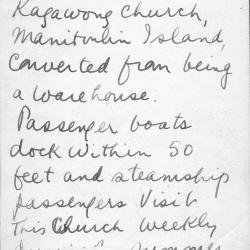 Kagawong Church,
Manitoulin Island,
Converted from being
a warehouse.
Passenger boats
dock within 50
feet and steamship
passengers visit
This Church weekly